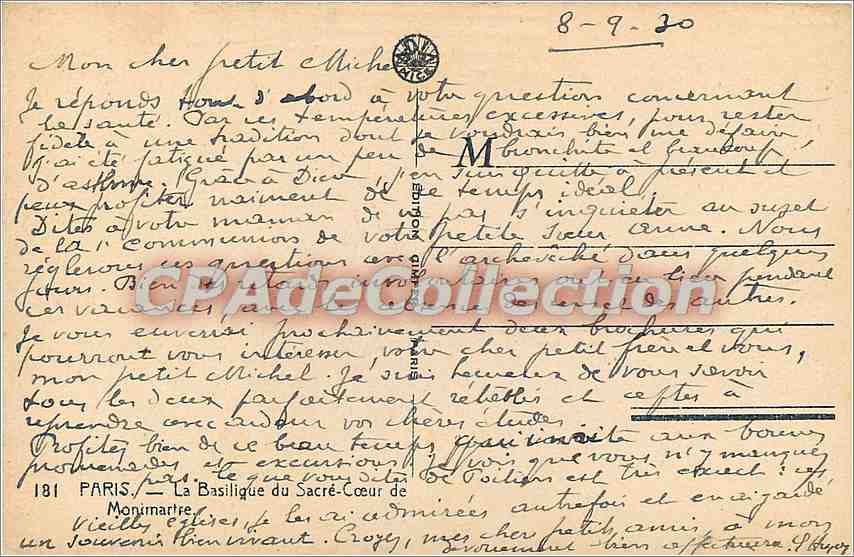 8-9-30
Mon cher petit Michel
Je réponds tout d'abord à votre question concernant
la santé. Par ces températures excessives, pour rester
fidèle à une tradition dont je voudrais bien me défaire
j'ai été fatigué par un peu de bronchite et beaucoup
d'asthme. Grâce à Dieu j'en suis quitte à présent et
peux profiter vraiment de ce temps idéal.
Dites à votre maman de ne pas s'inquiéter au sujet
de la 1e communion de votre petite sœur Anne. Nous
réglerons ces questions avec l'archevêché dans quelques
jours. Bien des retards involontaires ont eu lieu pendant
ces vacances, avec les des uns et des autres.
Je vous enverrai prochainement deux brochures qui
pourront vous intéresser, votre cher petit frère et vous,
mon petit Michel. Je suis heureux de vous savoir
tous les deux parfaitement rétablis et aptes à
reprendre avec ardeur vos chères études.
Profitez bien de ce beau temps qui invite aux bonnes
promenades et excursions. Je vois que vous n'y manquez
pas. Ce que vous dites de Poitiers est très exact : ces
vieilles églises, je les ai admirées autrefois et en ai gardé
un souvenir bien vivant. Croyez, mes chers petits amis à mon
dévouement bien affectueux.
M
ÉDITION GIMPEL PARIS
181 PARIS. — La Basilique du Sacré-Cœur de
Montmartre.
CPAdeCollection